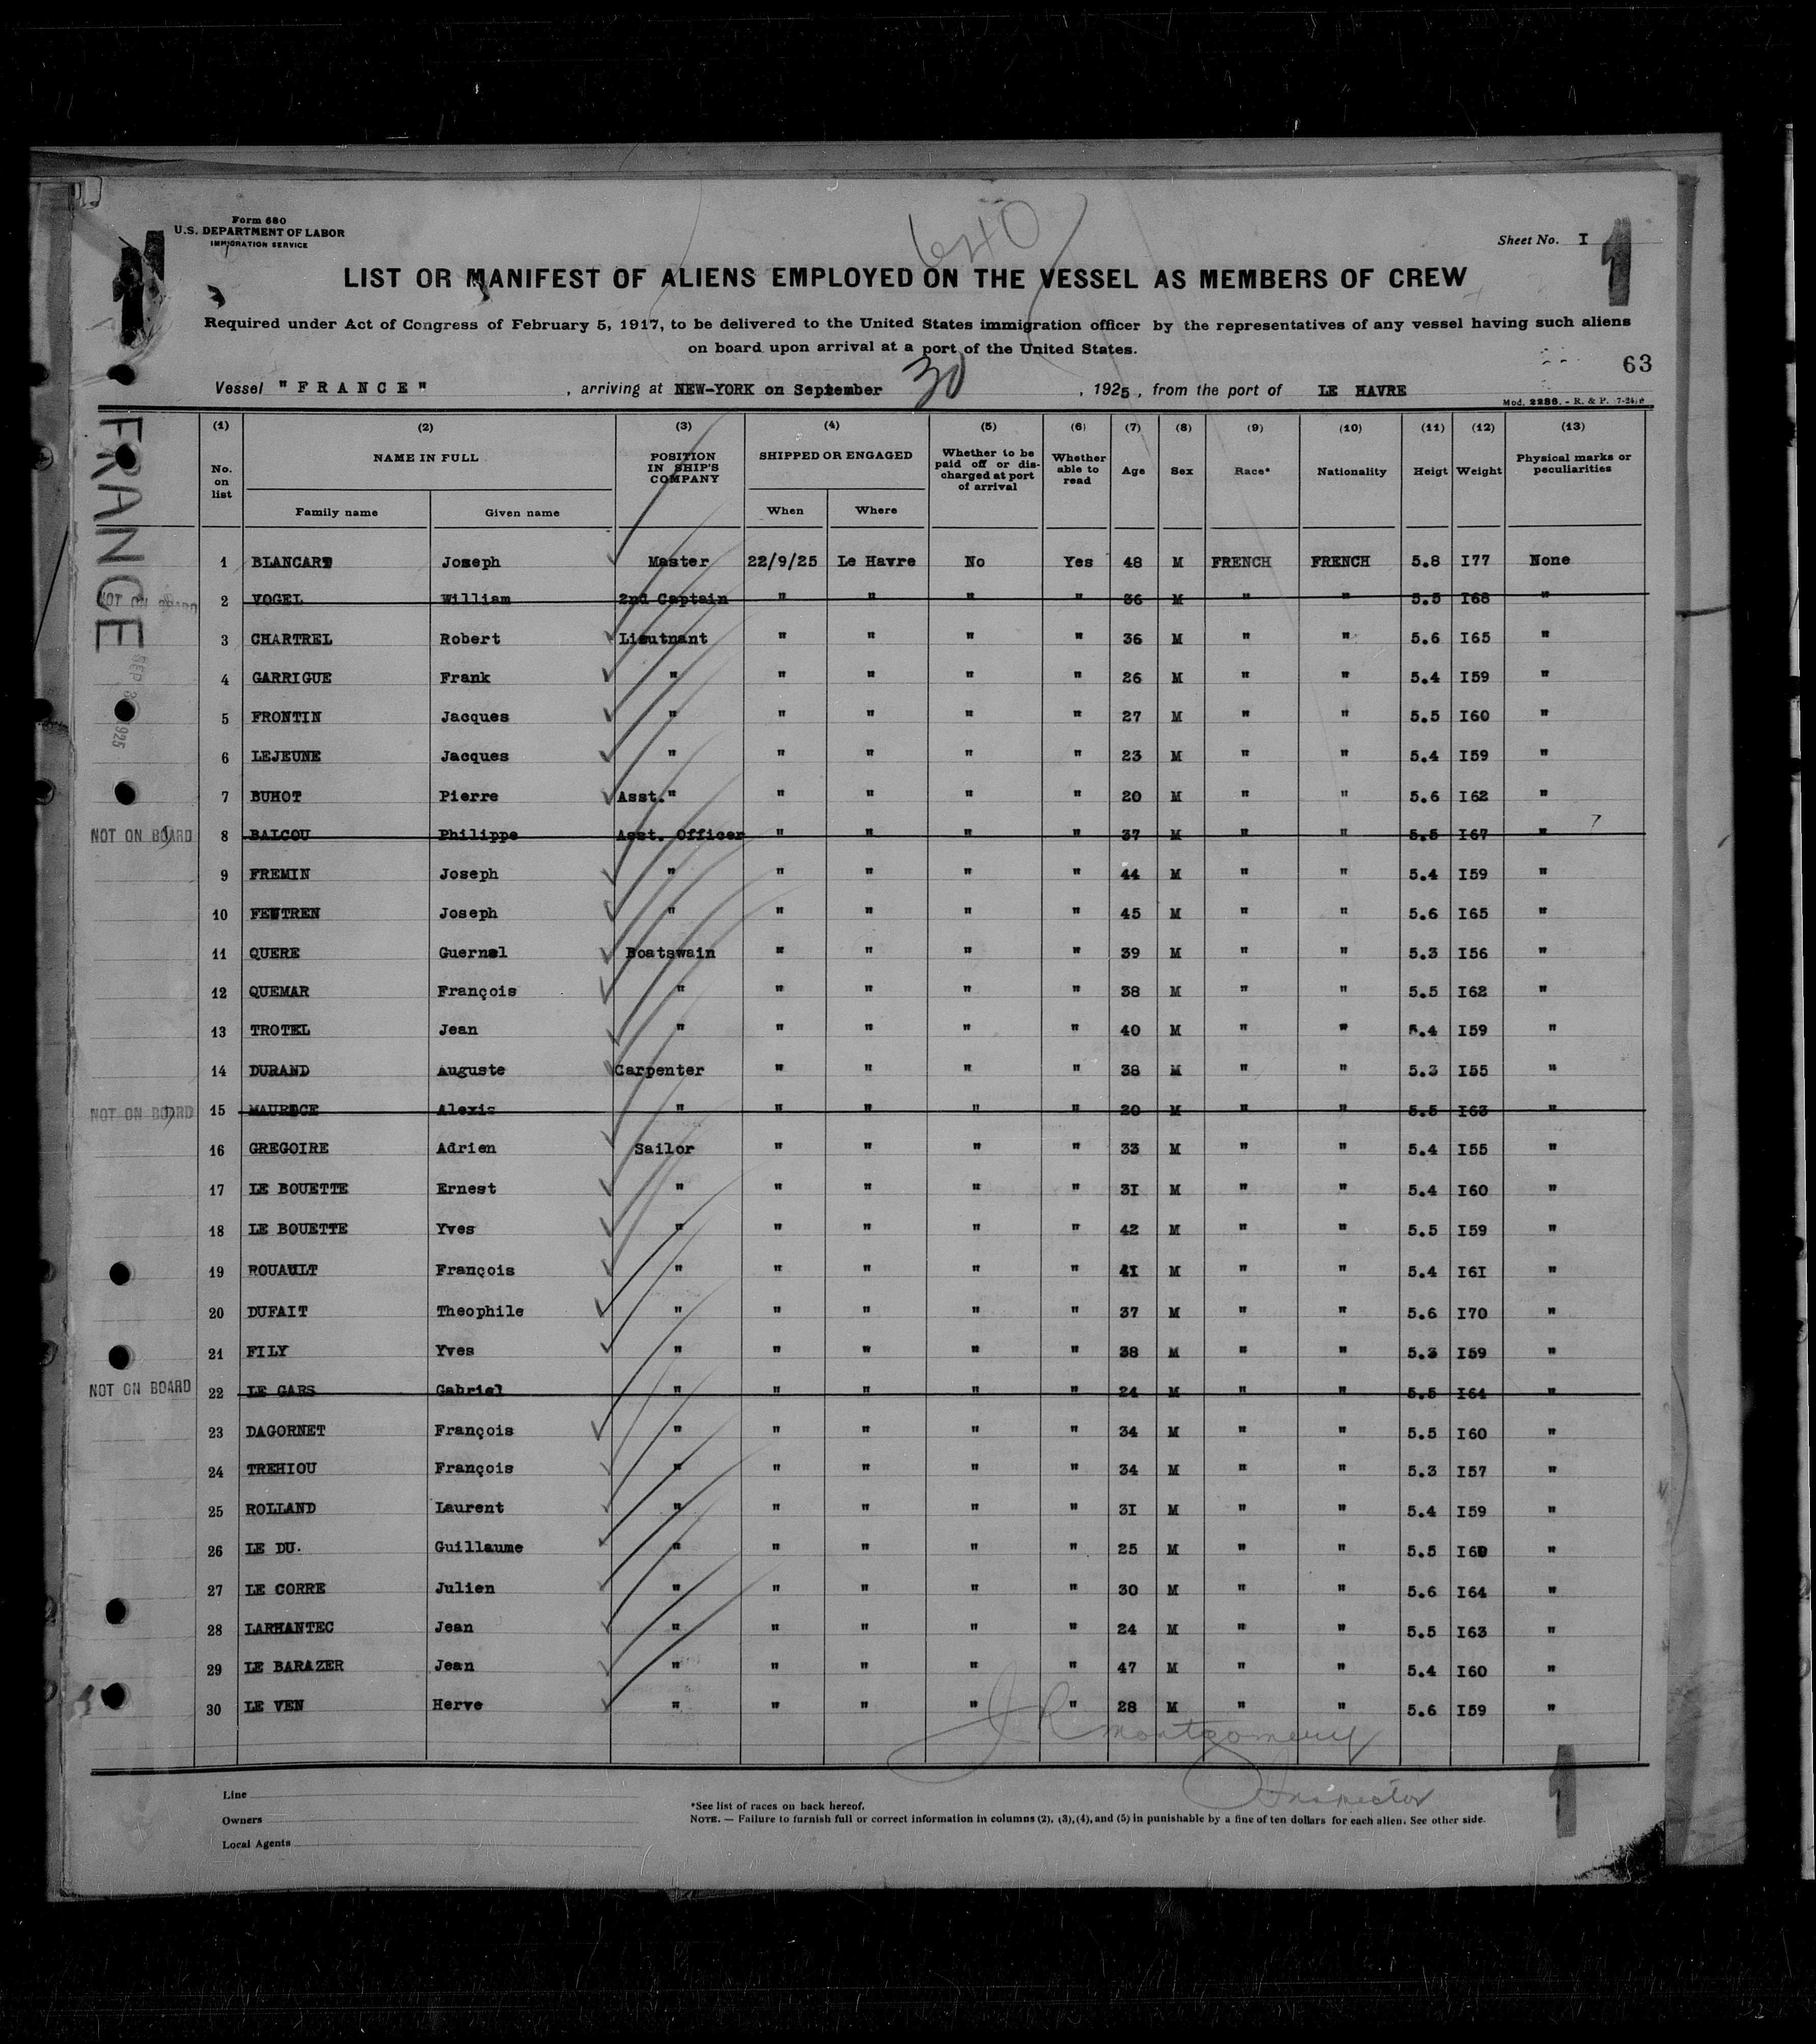 Form 680
U.S. DEPARTMENT OF LABOR
IMMIGRATION SERVICE
Sheet No. I
1
640
LIST OR MANIFEST OF ALIENS EMPLOYED ON THE VESSEL AS MEMBERS OF CREW
Required under Act of Congress of February 5, 1917, to be delivered to the United States immigration officer by the representatives of any vessel having such aliens
on board upon arrival at a port of the United States.
63
Vessel "FRANCE", arriving at NEW-YORK on September 30, 1925, from the port of LE HAVRE
Mod. 2286. - R. & P.
FRANCE
(1) (2) (3) (4) (5) (6) (7) (8) (9) (10) (11) (12) (13)
No. on list NAME IN FULL POSITION IN SHIP'S COMPANY SHIPPED OR ENGAGED Whether to be paid off or discharged at port of arrival Whether able to read Age Sex Race* Nationality Heigt Weight Physical marks or peculiarities
Family name Given name When Where
1 BLANCART Joseph Master 22/9/25 Le Havre No Yes 48 M FRENCH FRENCH 5.8 I77 None
NOT ON BOARD 2 VOGEL William 2nd Captain " " " " 36 M " " 5.5 I68 "
3 CHARTREL Robert Lieutnant " " " " 36 M " " 5.6 I65 "
4 GARRIGUE Frank " " " " " 26 M " " 5.4 I59 "
5 FRONTIN Jacques " " " " " 27 M " " 5.5 I60 "
6 LEJEUNE Jacques " " " " " 23 M " " 5.4 I59 "
7 BUHOT Pierre Asst. " " " " " 20 M " " 5.6 I62 "
NOT ON BOARD 8 BALCOU Philippe Asst. Officer " " " " 37 M " " 5.5 I67 "
9 FREMIN Joseph " " " " " 44 M " " 5.4 I59 "
10 Joseph " " " " " 45 M " " 5.6 I65 "
11 QUERE Guernel Boatswain " " " " 39 M " " 5.3 I56 "
12 QUEMAR François " " " " " 38 M " " 5.5 I62 "
13 TROTEL Jean " " " " " 40 M " " 5.4 I59 "
14 DURAND Auguste Carpenter " " " " 38 M " " 5.3 I55 "
NOT ON BOARD 15 Alexis " " " " " 20 M " " 5.5 I63 "
16 GREGOIRE Adrien Sailor " " " " 33 M " " 5.4 I55 "
17 LE BOUETTE Ernest " " " " " 3I M " " 5.4 I60 "
18 LE BOUETTE Yves " " " " " 42 M " " 5.5 I59 "
19 ROUAULT François " " " " " 4I M " " 5.4 I6I "
20 DUFAIT Theophile " " " " " 37 M " " 5.6 I70 "
21 FILY Yves " " " " " 38 M " " 5.3 I59 "
NOT ON BOARD 22 LE GARS Gabriel " " " " " 24 M " " 5.5 I64 "
23 DAGORNET François " " " " " 34 M " " 5.5 I60 "
24 TREHIOU François " " " " " 34 M " " 5.3 I57 "
25 ROLLAND Laurent " " " " " 3I M " " 5.4 I59 "
26 LE DU. Guillaume " " " " " 25 M " " 5.5 I60 "
27 LE CORRE Julien " " " " " 30 M " " 5.6 I64 "
28 LARHANTEC Jean " " " " " 24 M " " 5.5 I63 "
29 LE BARAZER Jean " " " " " 47 M " " 5.4 I60 "
30 LE VEN Herve " " " " " 28 M " " 5.6 I59 "
J R Montgomery
Inspector
1
Line
Owners
Local Agents
*See list of races on back hereof.
NOTE. — Failure to furnish full or correct information in columns (2), (3), (4), and (5) in punishable by a fine of ten dollars for each alien. See other side.